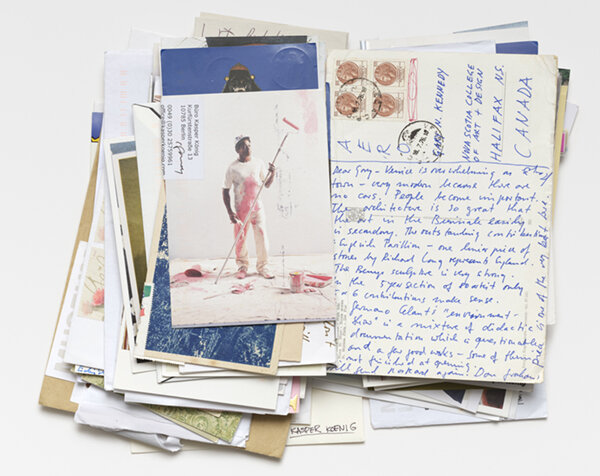 Büro Kasper König
Kurfürstenstraße 13
10785 Berlin
0049 (0)30 25759961
GARRY N. KENNEDY
NOVA SCOTIA COLLEGE
OF ART + DESIGN
HALIFAX, N.S.
CANADA
AERO
Dear Gary - Venice is overwhelming as
town - very modern because there are
no cars. People become important.
The architecture is so great that
the art in the Biennale easily
is secondary. The outstanding contribution
English Pavillion - one linear piece of
stones by Richard Long represents England.
The Beuys sculpture is very strong.
In the section of
6 contributions make sense.
Germano Celant's "environment-
show" is a mixture of didactic
documentation which is questionable
and a few good works - some of them
not finished at opening.
Dan Graham
KASPER KOENIG